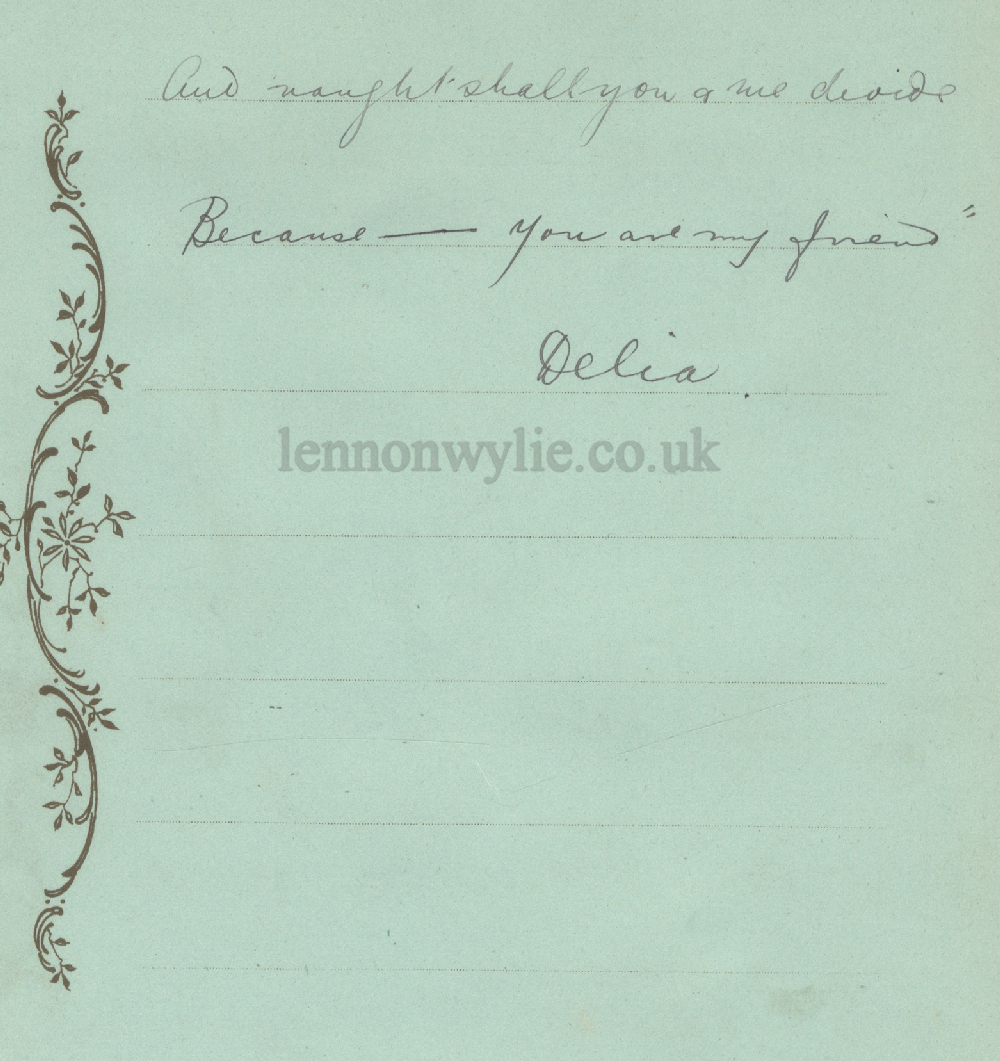 And naught shall you & me divide
Because — you are my friend"
Delia.
lennonwylie.co.uk